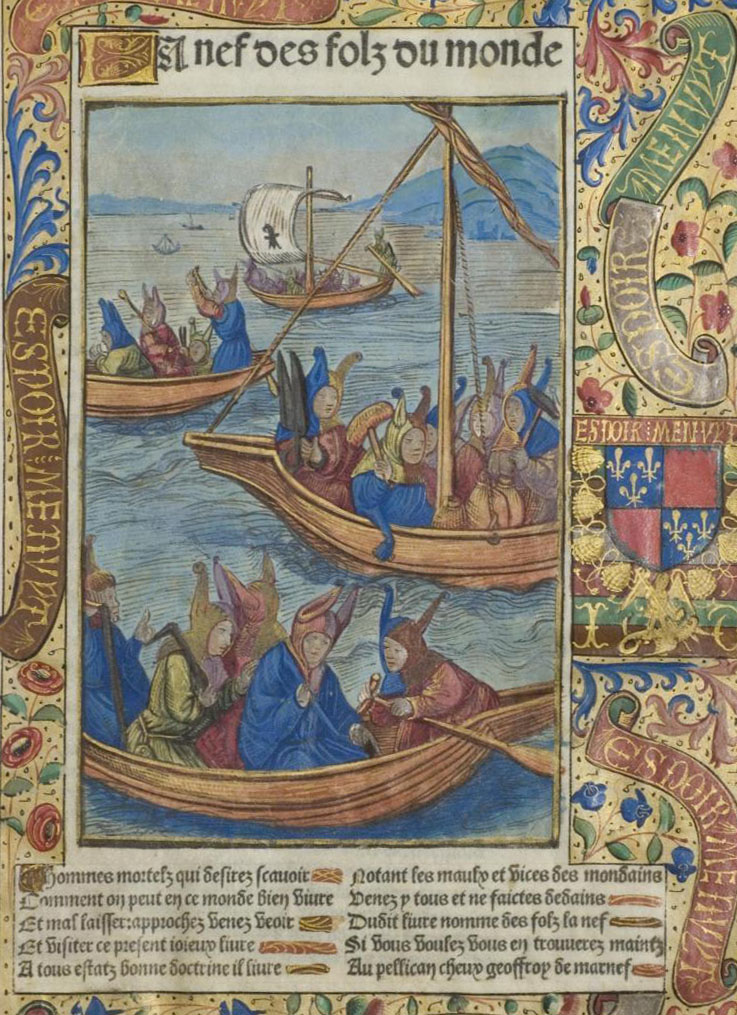 La nef des folz du monde
MENVRT
ESPOIR
ESPOIR MENVRT
ESPOIR MENVRT
O hommes mortelz qui desirez scavoir
Comment on peut en ce monde bien vivre
Et mal laisser: approchez venez veoir
Et visiter ce present ioieux livre
A tous estatz bonne doctrine il livre
Notant les maulx et vices des mondains
Venez y tous et ne faictes dedains
Dudit livre nomme des folz la nef
Si vous voulez vous en trouverez maintz
Au pellican cheux geoffroy de marnef
ESPOIR MENVRT